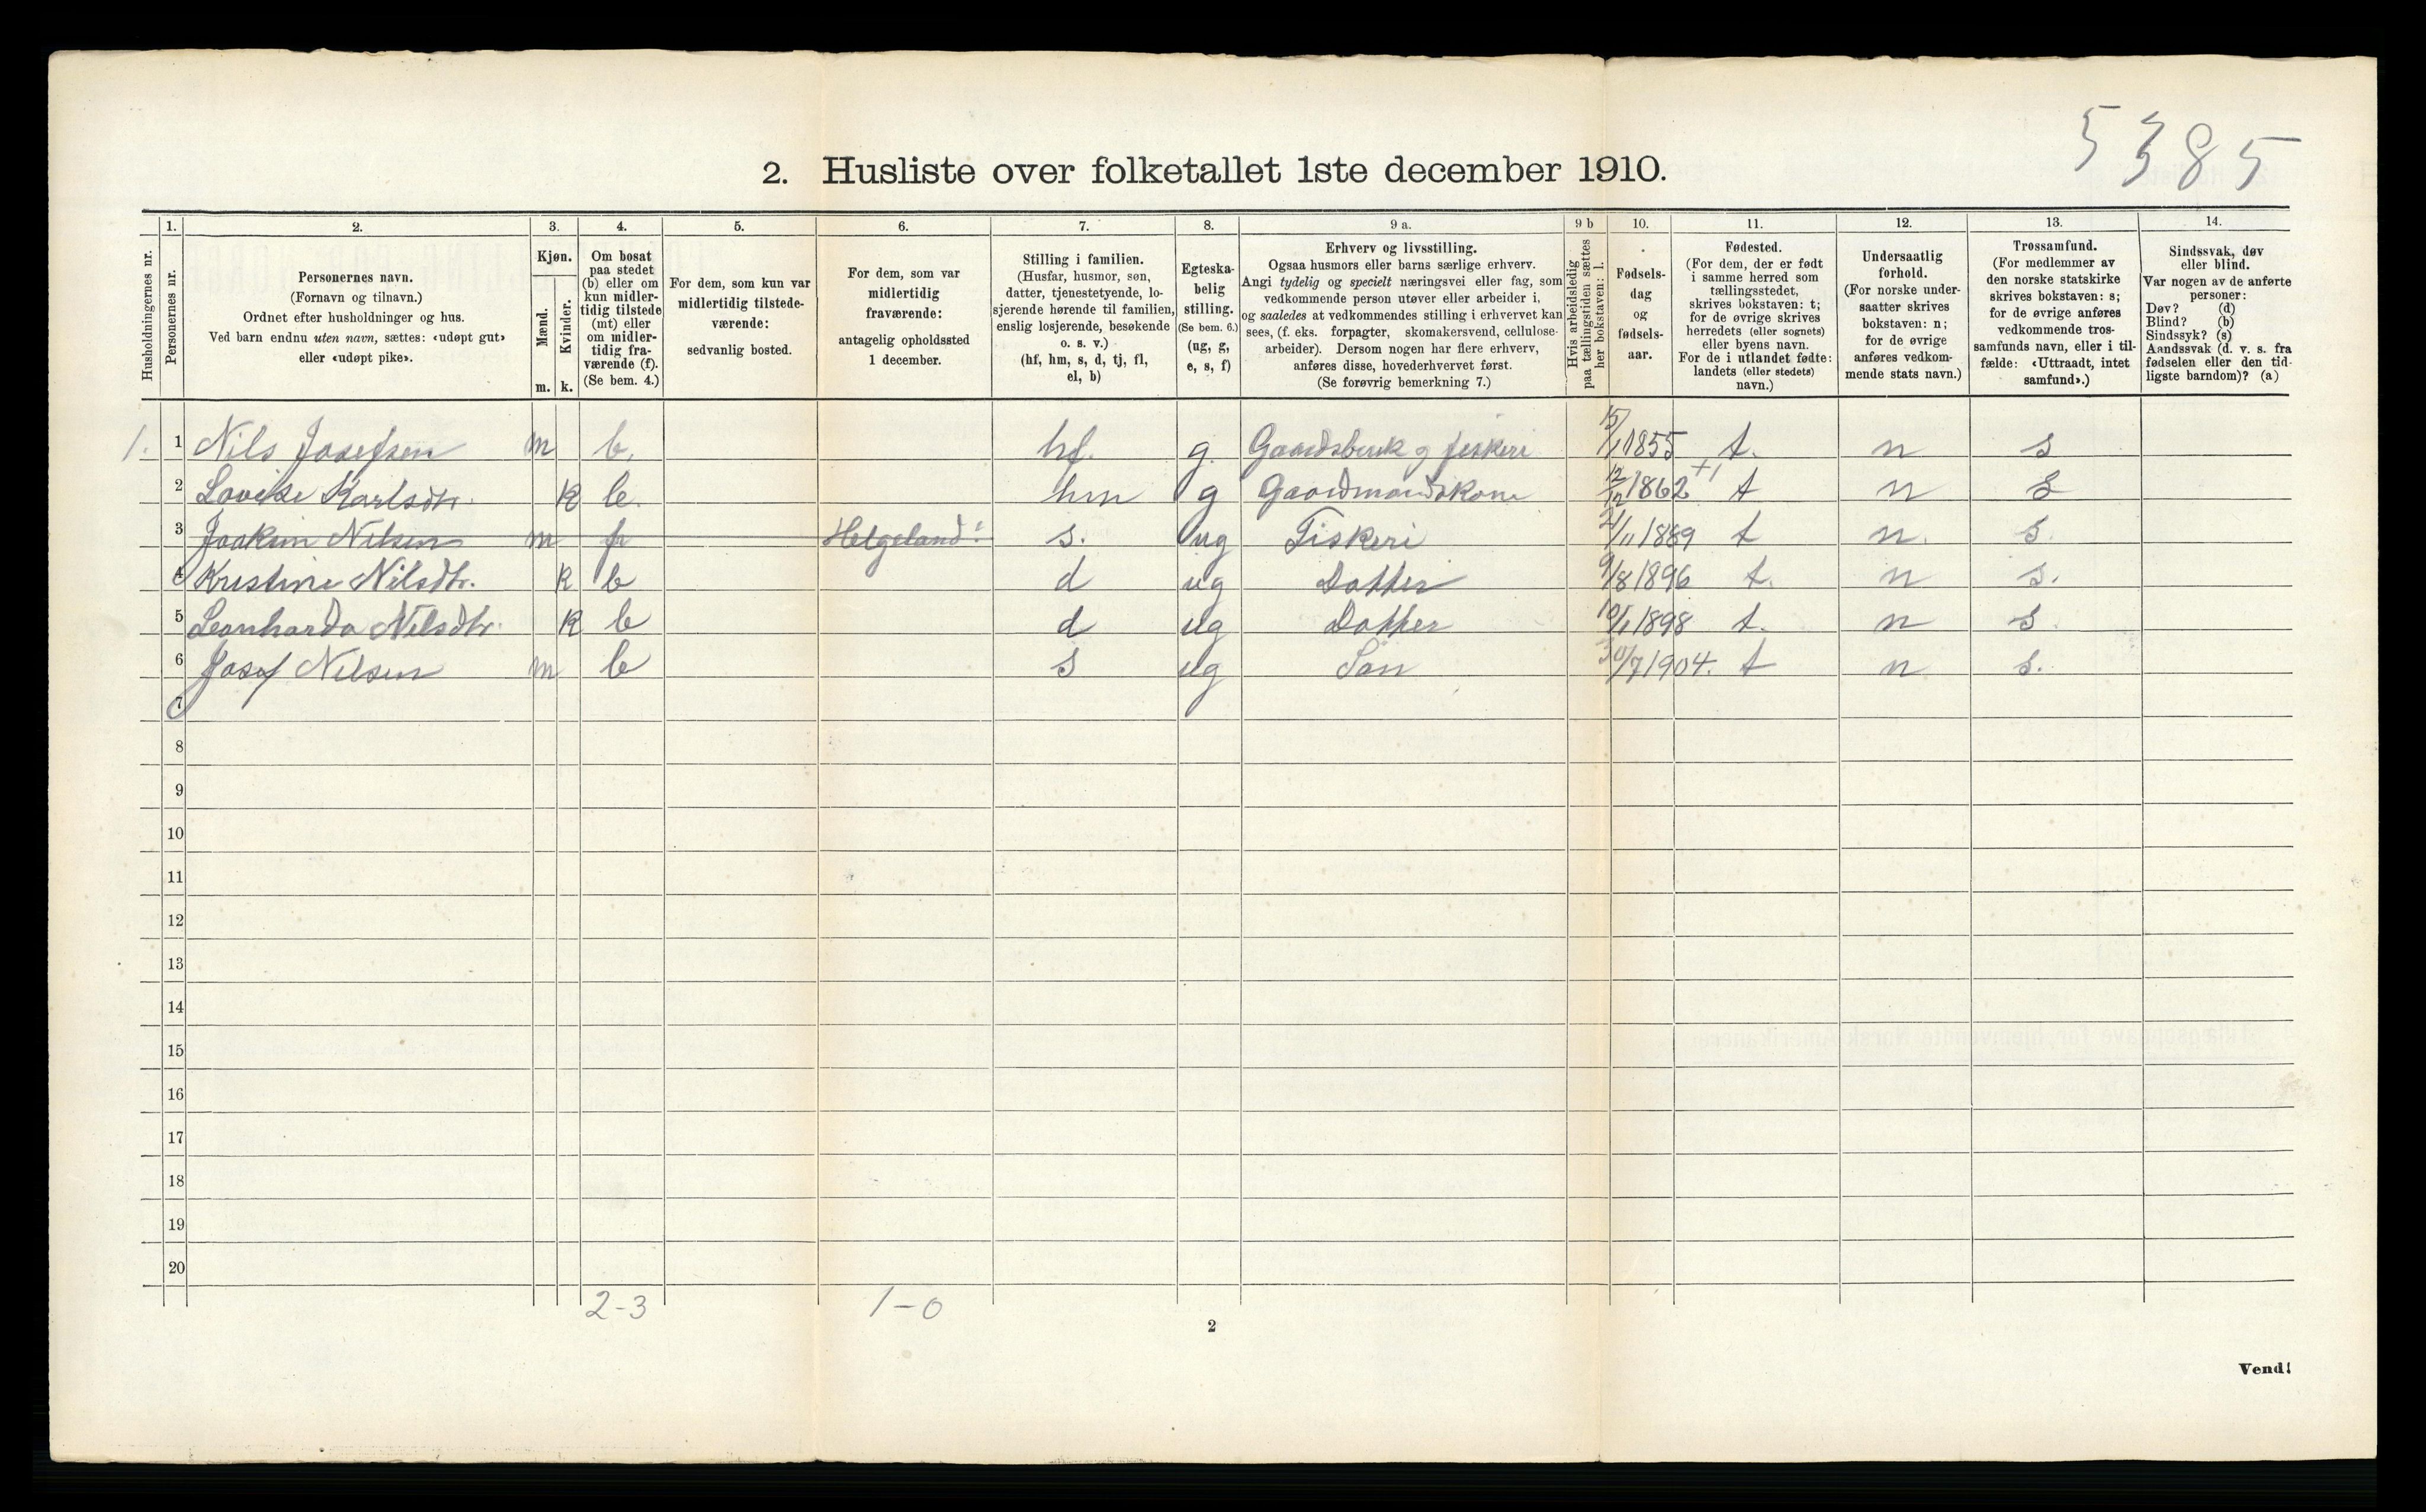 5385
2. Husliste over folketallet 1ste december 1910.
Husholdningernes nr.
1.
Personernes nr.
2.
Personernes navn.
(Fornavn og tilnavn.)
Ordnet efter husholdninger og hus.
Ved barn endnu uten navn, sættes: «udøpt gut»
eller «udøpt pike».
3.
Kjøn.
Mænd.
m.
Kvinder.
k.
4.
Om bosat
paa stedet
(b) eller om
kun midler-
tidig tilstede
(mt) eller
om midler-
tidig fra-
værende (f).
(Se bem. 4.)
5.
For dem, som kun var
midlertidig tilstede-
værende:
sedvanlig bosted.
6.
For dem, som var
midlertidig
fraværende:
antagelig opholdssted
1 december.
7.
Stilling i familien.
(Husfar, husmor, søn,
datter, tjenestetyende, lo-
sjerende hørende til familien,
enslig losjerende, besøkende
o. s. v.)
(hf, hm, s, d, tj, fl,
el, b)
8.
Egteska-
belig
stilling.
(Se bem. 6.)
(ug, g,
e, s, f)
9 a.
Erhverv og livsstilling.
Ogsaa husmors eller barns særlige erhverv.
Angi tydelig og specielt næringsvei eller fag, som
vedkommende person utøver eller arbeider i,
og saaledes at vedkommendes stilling i erhvervet kan
sees, (f. eks. forpagter, skomakersvend, cellulose-
arbeider). Dersom nogen har flere erhverv,
anføres disse, hovederhvervet først.
(Se forøvrig bemerkning 7.)
9 b
Hvis arbeidsledig
paa tællingstiden sættes
her bokstaven: l.
10.
Fødsels-
dag
og
fødsels-
aar.
11.
Fødested.
(For dem, der er født
i samme herred som
tællingsstedet,
skrives bokstaven: t;
for de øvrige skrives
herredets (eller sognets)
eller byens navn.
For de i utlandet fødte:
landets (eller stedets)
navn.)
12.
Undersaatlig
forhold.
(For norske under-
saatter skrives
bokstaven: n;
for de øvrige
anføres vedkom-
mende stats navn.)
13.
Trossamfund.
(For medlemmer av
den norske statskirke
skrives bokstaven: s;
for de øvrige anføres
vedkommende tros-
samfunds navn, eller i til-
fælde: «Uttraadt, intet
samfund».)
14.
Sindssvak, døv
eller blind.
Var nogen av de anførte
personer:
Døv? (d)
Blind? (b)
Sindssyk? (s)
Aandssvak (d. v. s. fra
fødselen eller den tid-
ligste barndom)? (a)
1. 1 Nils Josefsen m b. hf. g. Gaardsbruk og feskeri 15/1 1855 t. n s
2 Lovise Karlsdtr. k b. hm g Gaardmandskone 12/12 1862 t n s
3 Joakim Nilsen m f Helgeland s. ug Fiskeri 21/11 1889 t n. s.
4 Kristine Nilsdtr. k b d ug Datter 9/8 1896 t. n s.
5 Leonharda Nilsdtr. k b d ug Datter 10/1 1898 t. n s.
6 Josef Nilsen m b s ug Søn 30/7 1904. t n s.
7
8
9
10
11
12
13
14
15
16
17
18
19
20
2-3 1-0
2
Vend!